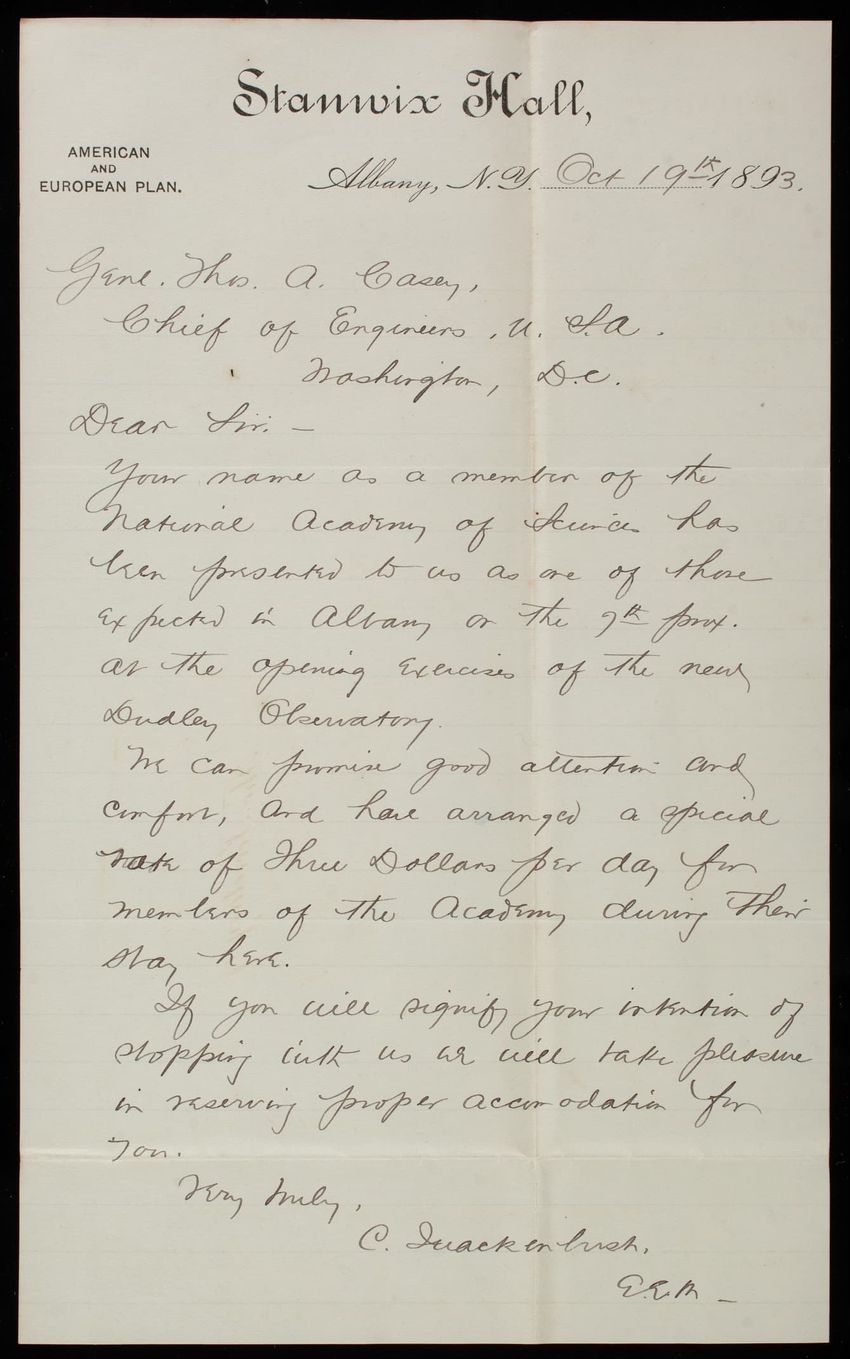 Stanwix Hall,
AMERICAN
AND
EUROPEAN PLAN.
Albany, N.Y. Oct 19th 1893.
Genl. Thos. A. Casey,
Chief of Engineers, U.S.A.
Washington, D.C.
Dear Sir. —
Your name as a member of the
National Academy of Sciences has
been presented to us as one of those
expected in Albany on the 7th prox.
at the opening exercises of the new
Dudley Observatory.
We can promise good attention and
comfort, and have arranged a special
rate of Three Dollars per day for
members of the Academy during their
stay here.
If you will signify your intention of
stopping with us we will take pleasure
in reserving proper accomodation for
you.
Very truly,
C. Quackenbush.